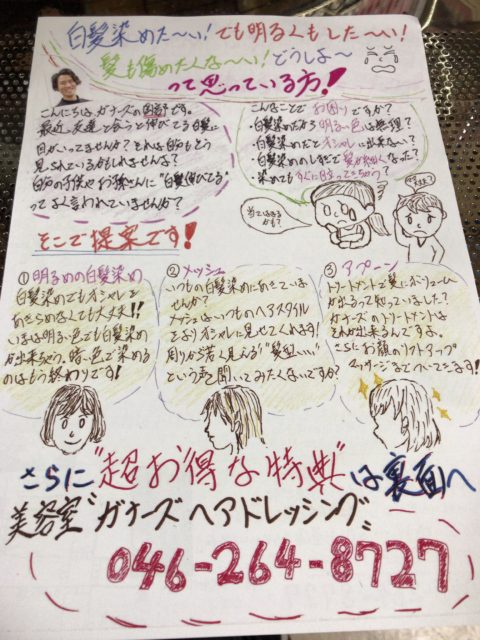 白髪染めた〜い！でも明るくもした〜い！
髪も傷めたくな〜い！どうしよ〜
って思っている方！
こんにちは、ガナーズの
です。
最近、友達と会うと伸びてる白髪に
目がいってませんか？それは自分もそう
見られているかもしれませんよ？
自分の子供やお孫さんに"白髪伸びてる"
ってよく言われていませんか？
こんなことでお困りですか？
・白髪染めだから明るい色は無理？
・白髪染めだとオシャレに出来ない？
・白髪染めのしすぎで髪が細くなった？
・染めてもすぐに目立っちゃう？
当てはまるかも？
そこで提案です！
①明るめの白髪染め
白髪染めでもオシャレを
あきらめなくても大丈夫!!
いまは明るい色でも白髪染め
が出来ちゃう。暗い色で染める
のはもう終わりです！
②メッシュ
いつもの白髪染めにあきていませ
んか？
メッシュはいつものヘアスタイル
をよりオシャレに見せてくれます！
周りから若く見える"髪型いい"
という声を聞いてみたくないですか？
③アプーン
トリートメントで髪にボリューム
が出るって知っていました？
ガナーズのトリートメントは
それが出来るんですよ。
さらにお顔のリフトアップ
マッサージまでついてきます！
さらに"超お得な特典"は裏面へ
美容室"ガナーズヘアドレッシング"
046-264-8727